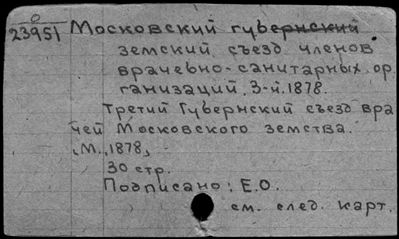 0
23951 Московский губернский
земский съезд членов
врачебно-санитарных ор
ганизаций. 3-й. 1878.
Третий Губернский съезд вра
чей Московского земства.
М., 1878,
30 стр.
Подписано: Е.О.
см. след. карт.